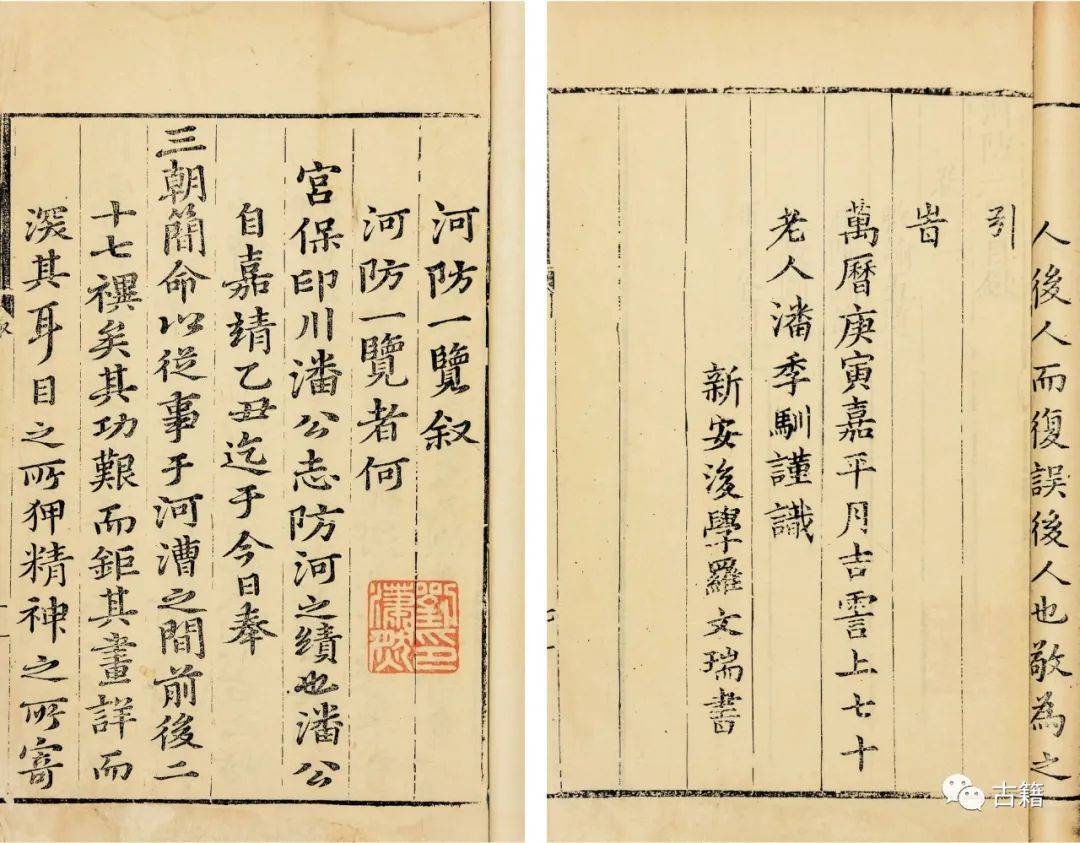 人後人而復誤後人也敬為之
引
旹
萬曆庚寅嘉平月吉霅上七十
老人潘季馴謹識
新安後學羅文瑞書
河防一覽叙
河防一覽者何
宮保印川潘公志防河之績也潘公
自嘉靖乙丑迄于今日奉
三朝簡命以從事于河漕之間前後二
十七禩矣其功艱而鉅其畫詳而
深其耳目之所狎精神之所寄
古籍